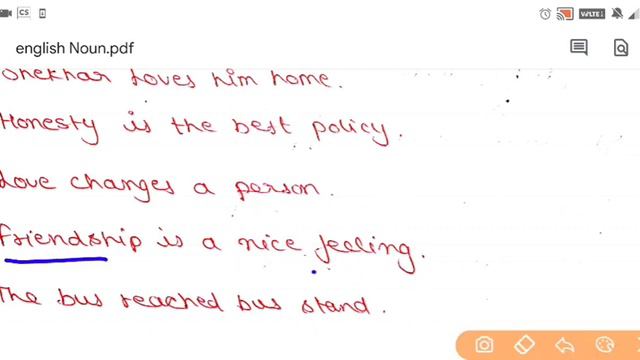 CS
VoLTE
english Noun.pdf
Shekhar Loves him home.
Honesty is the best policy.
Love changes a person.
Friendship is a nice feeling.
The bus reached bus stand.